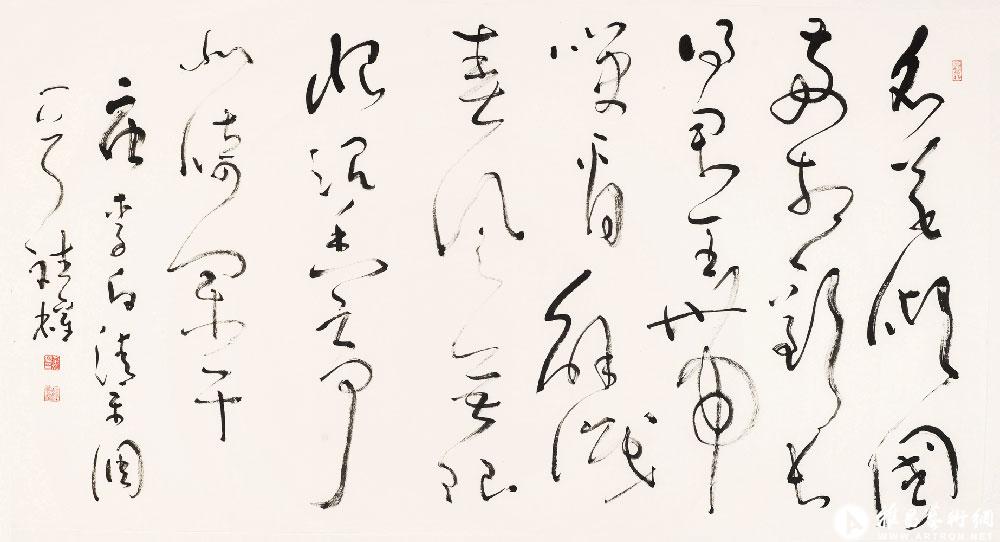 名花傾國
兩相歡長
得君王帶
笑看解識
春風無限
恨沉香亭
北倚闌干
唐李白清平調
雅昌藝術網
WWW.ARTRON.NET